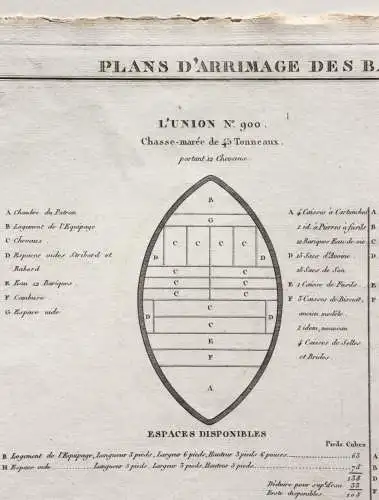 PLANS D'ARRIMAGE DES BA
L'UNION Nº. 900.
Chasse-marée de 45 Tonneaux.
portant 12 Chevaux.
A Chambre du Patron
B Logement de l'Equipage
C Chevaux
D Espaces vides Stribord et
Babord
E Eau 12 Bariques
F Cambuse
G Espace vide
B
G
C C C C
D D
C C
C C
C C
E
D D
F
A
A 4 Caisses à Cartouches
1 id. à Pierres à fusils
12 Bariques Eau de
D 15 Sacs d'Avoine
18 Sacs de Son
E 1 Caisse de Fusils
F 3 Caisses de Biscuit,
ancien modèle.
1 idem, nouveau
4 Caisses de Selles
et Brides.
A
B
E
F
ESPACES DISPONIBLES
Pieds Cubes
B Logement de l'Equipage, Longueur 5 pieds, Largeur 6 pieds, Hauteur 3 pieds 6 pouces
H Espace vide Longueur 5 pieds, Largeur 3 pieds, Hauteur 5 pieds
75
138
Déduire pour
33
Reste disponible
105